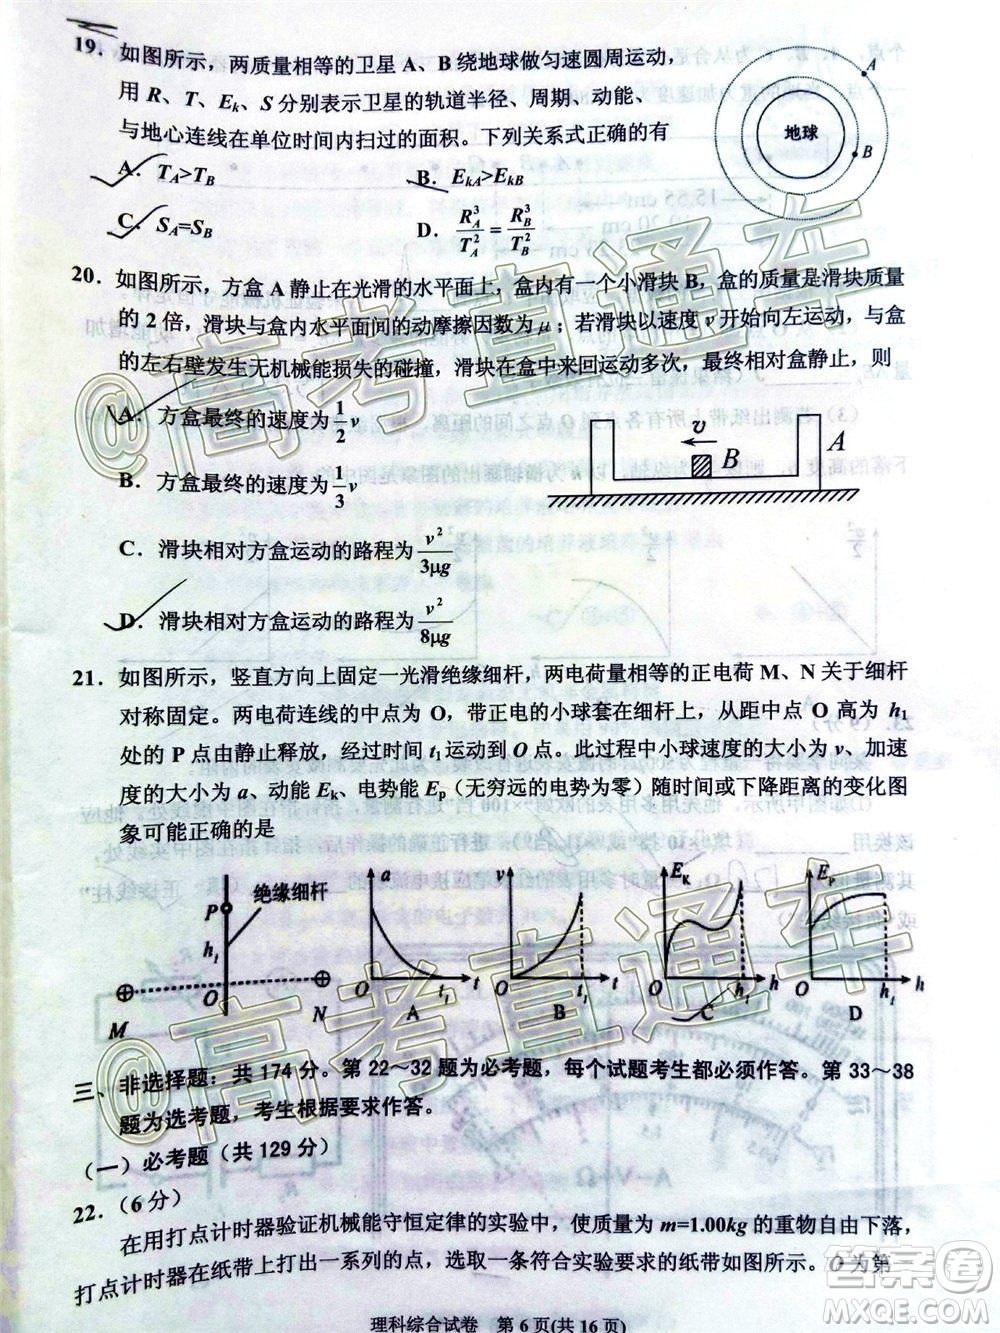 19. 如图所示，两质量相等的卫星 A、B 绕地球做匀速圆周运动，
用 R、T、Eₖ、S 分别表示卫星的轨道半径、周期、动能、
与地心连线在单位时间内扫过的面积。下列关系式正确的有
A. T_A>T_B B. E_kA>E_kB
C. S_A=S_B D. R_A³/T_A² = R_B³/T_B²
地球
A
B
20. 如图所示，方盒 A 静止在光滑的水平面上，盒内有一个小滑块 B，盒的质量是滑块质量
的 2 倍，滑块与盒内水平面间的动摩擦因数为 μ；若滑块以速度 v 开始向左运动，与盒
的左右壁发生无机械能损失的碰撞，滑块在盒中来回运动多次，最终相对盒静止，则
A. 方盒最终的速度为 1/2 v
B. 方盒最终的速度为 1/3 v
C. 滑块相对方盒运动的路程为 v²/3μg
D. 滑块相对方盒运动的路程为 v²/8μg
v
B
A
21. 如图所示，竖直方向上固定一光滑绝缘细杆，两电荷量相等的正电荷 M、N 关于细杆
对称固定。两电荷连线的中点为 O，带正电的小球套在细杆上，从距中点 O 高为 h₁
处的 P 点由静止释放，经过时间 t₁ 运动到 O 点。此过程中小球速度的大小为 v、加速
度的大小为 a、动能 E_K、电势能 E_P（无穷远的电势为零）随时间或下降距离的变化图
象可能正确的是
P
绝缘细杆
h₁
O
M
N
a
O
t₁
t
A
v
O
t₁
t
B
E_K
O
h₁
h
C
E_P
O
h₁
h
D
三、非选择题：共 174 分。第 22～32 题为必考题，每个试题考生都必须作答。第 33～38
题为选考题，考生根据要求作答。
（一）必考题（共 129 分）
22. (6 分)
在用打点计时器验证机械能守恒定律的实验中，使质量为 m=1.00kg 的重物自由下落，
打点计时器在纸带上打出一系列的点，选取一条符合实验要求的纸带如图所示。O 为第一
理科综合试卷 第 6 页(共 16 页)
@高考直通车
@高考直通车
答案圈
MXQE.COM